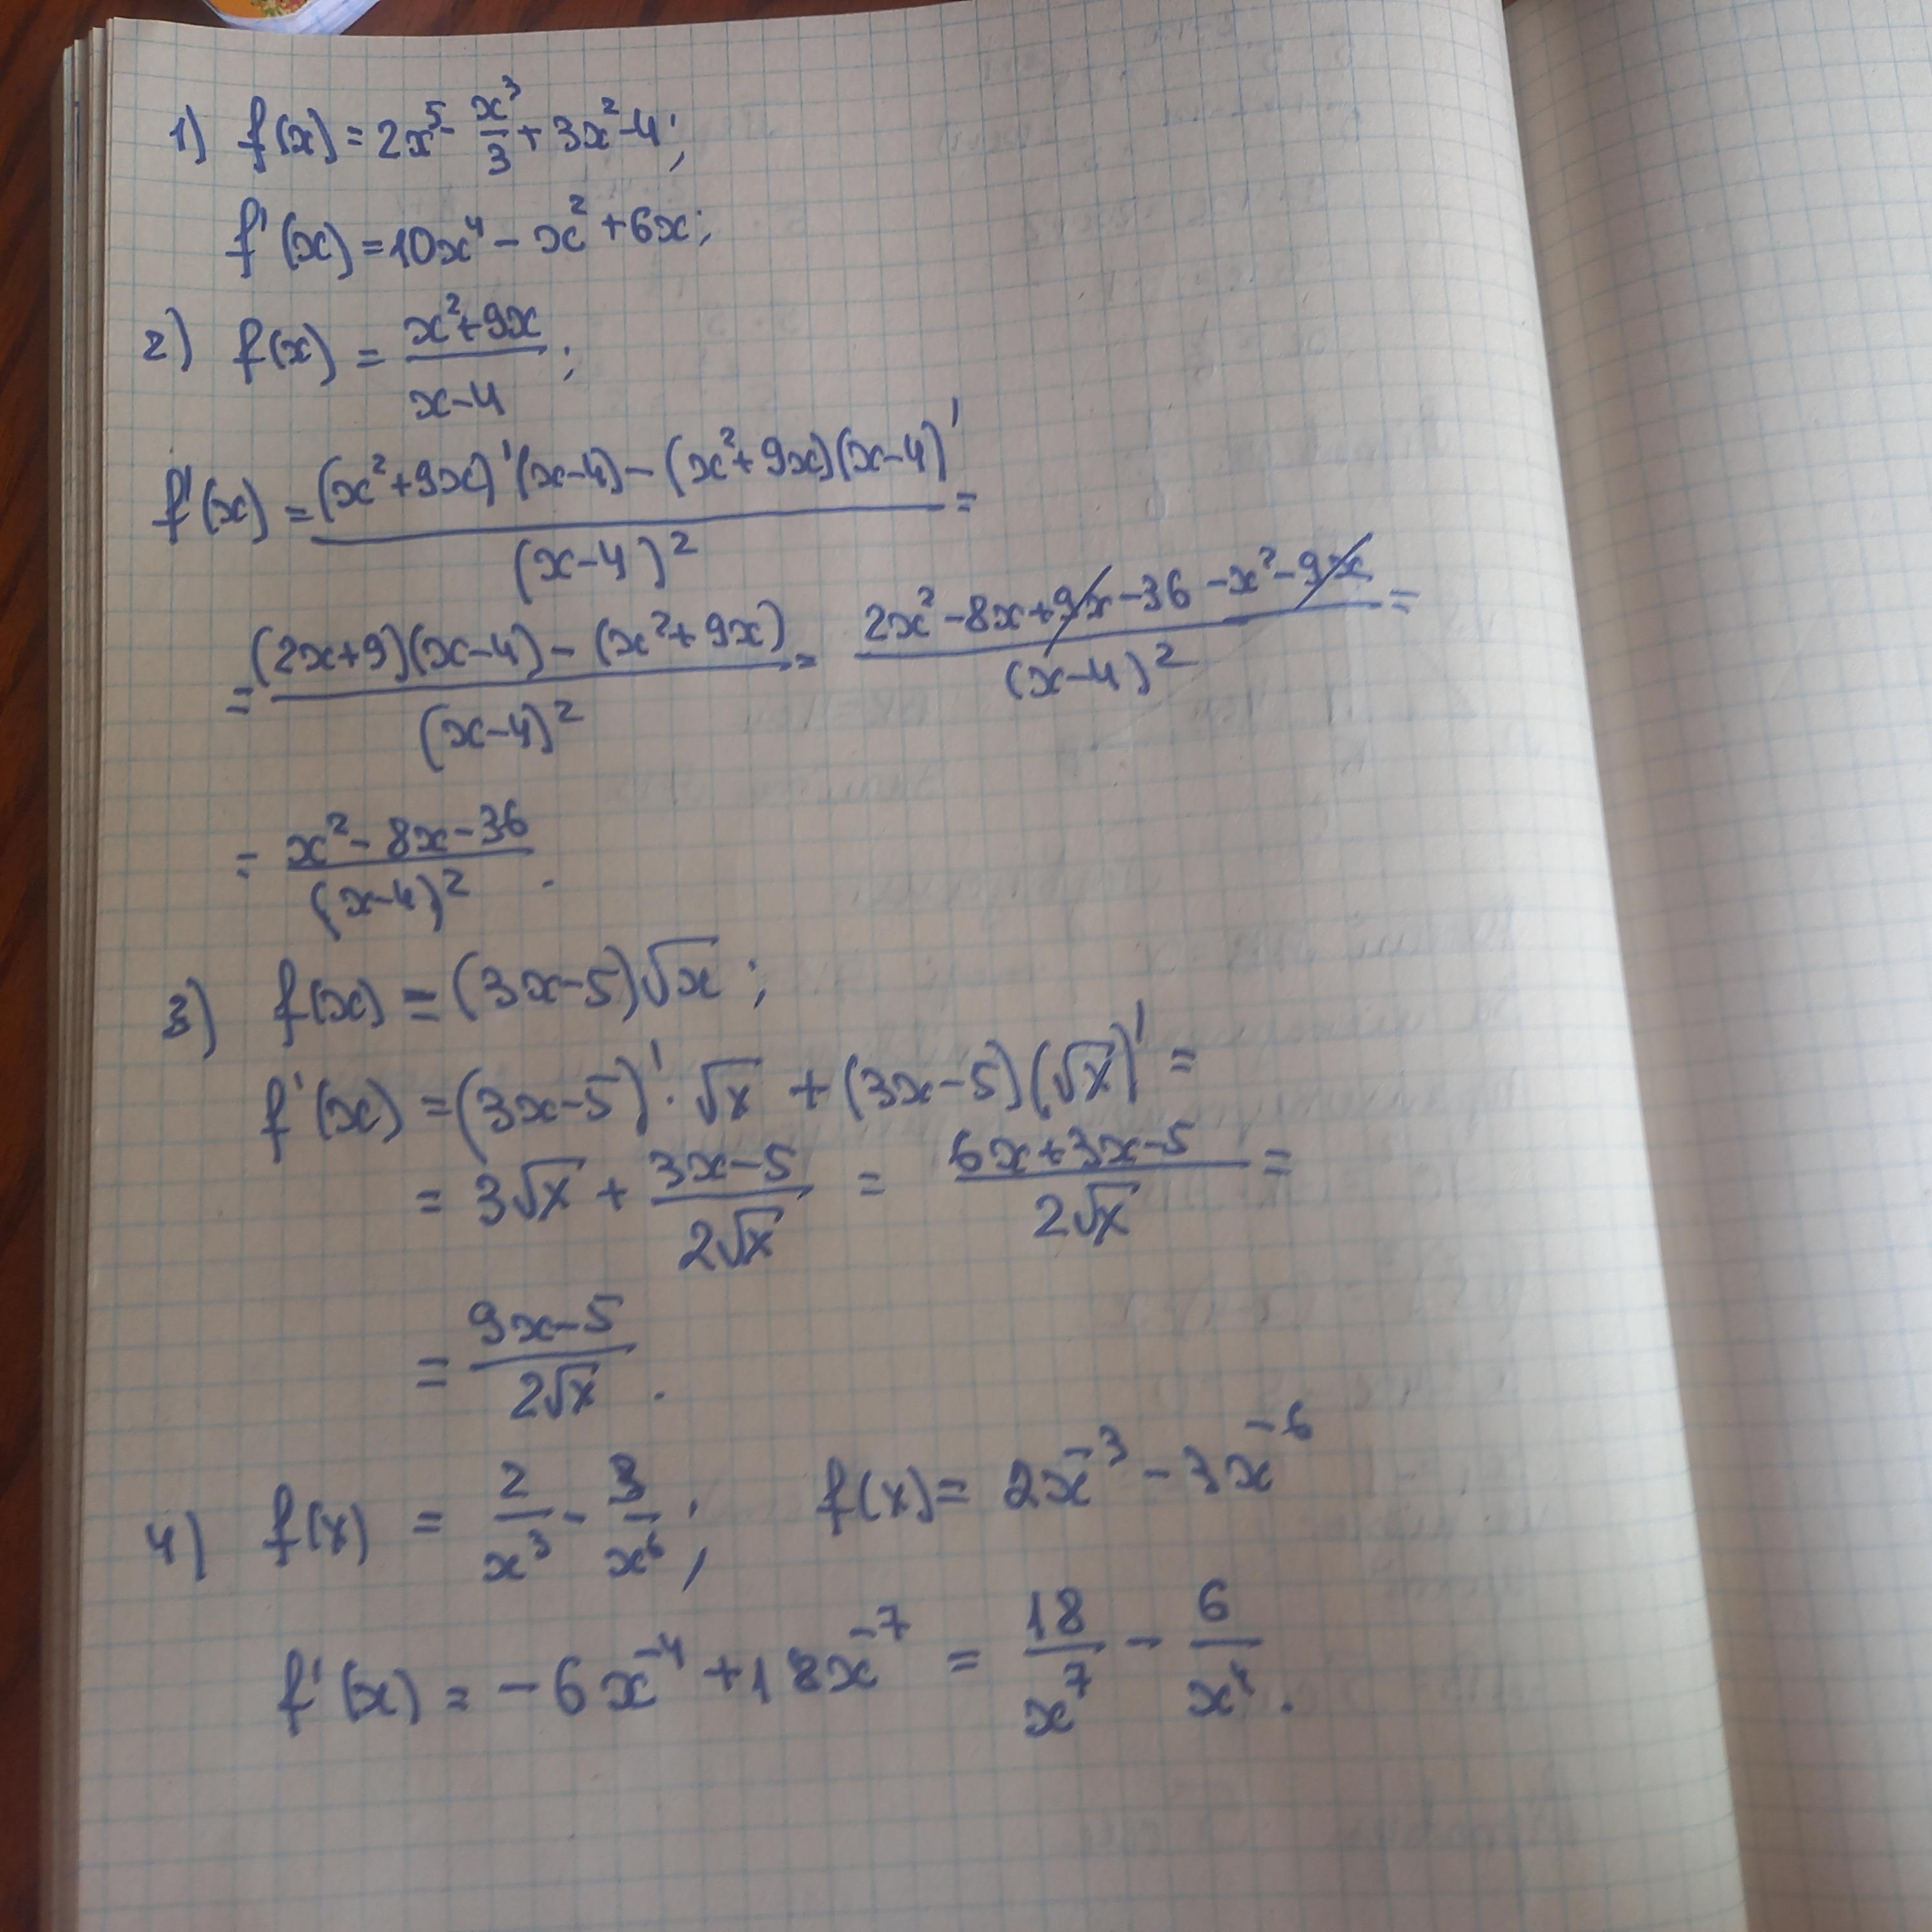 1) f(x) = 2x⁵ - x³/3 + 3x² - 4;
f'(x) = 10x⁴ - x² + 6x;
2) f(x) = (x²+9x)/(x-4);
f'(x) = ((x²+9x)'(x-4) - (x²+9x)(x-4)')/(x-4)² =
= ((2x+9)(x-4) - (x²+9x))/(x-4)² = (2x² - 8x + 9x - 36 - x² - 9x)/(x-4)² =
= (x² - 8x - 36)/(x-4)².
3) f(x) = (3x-5)√x;
f'(x) = (3x-5)' · √x + (3x-5)(√x)' =
= 3√x + (3x-5)/(2√x) = (6x+3x-5)/(2√x) =
= (9x-5)/(2√x).
4) f(x) = 2/x³ - 3/x⁶; f(x) = 2x⁻³ - 3x⁻⁶
f'(x) = -6x⁻⁴ + 18x⁻⁷ = 18/x⁷ - 6/x⁴.